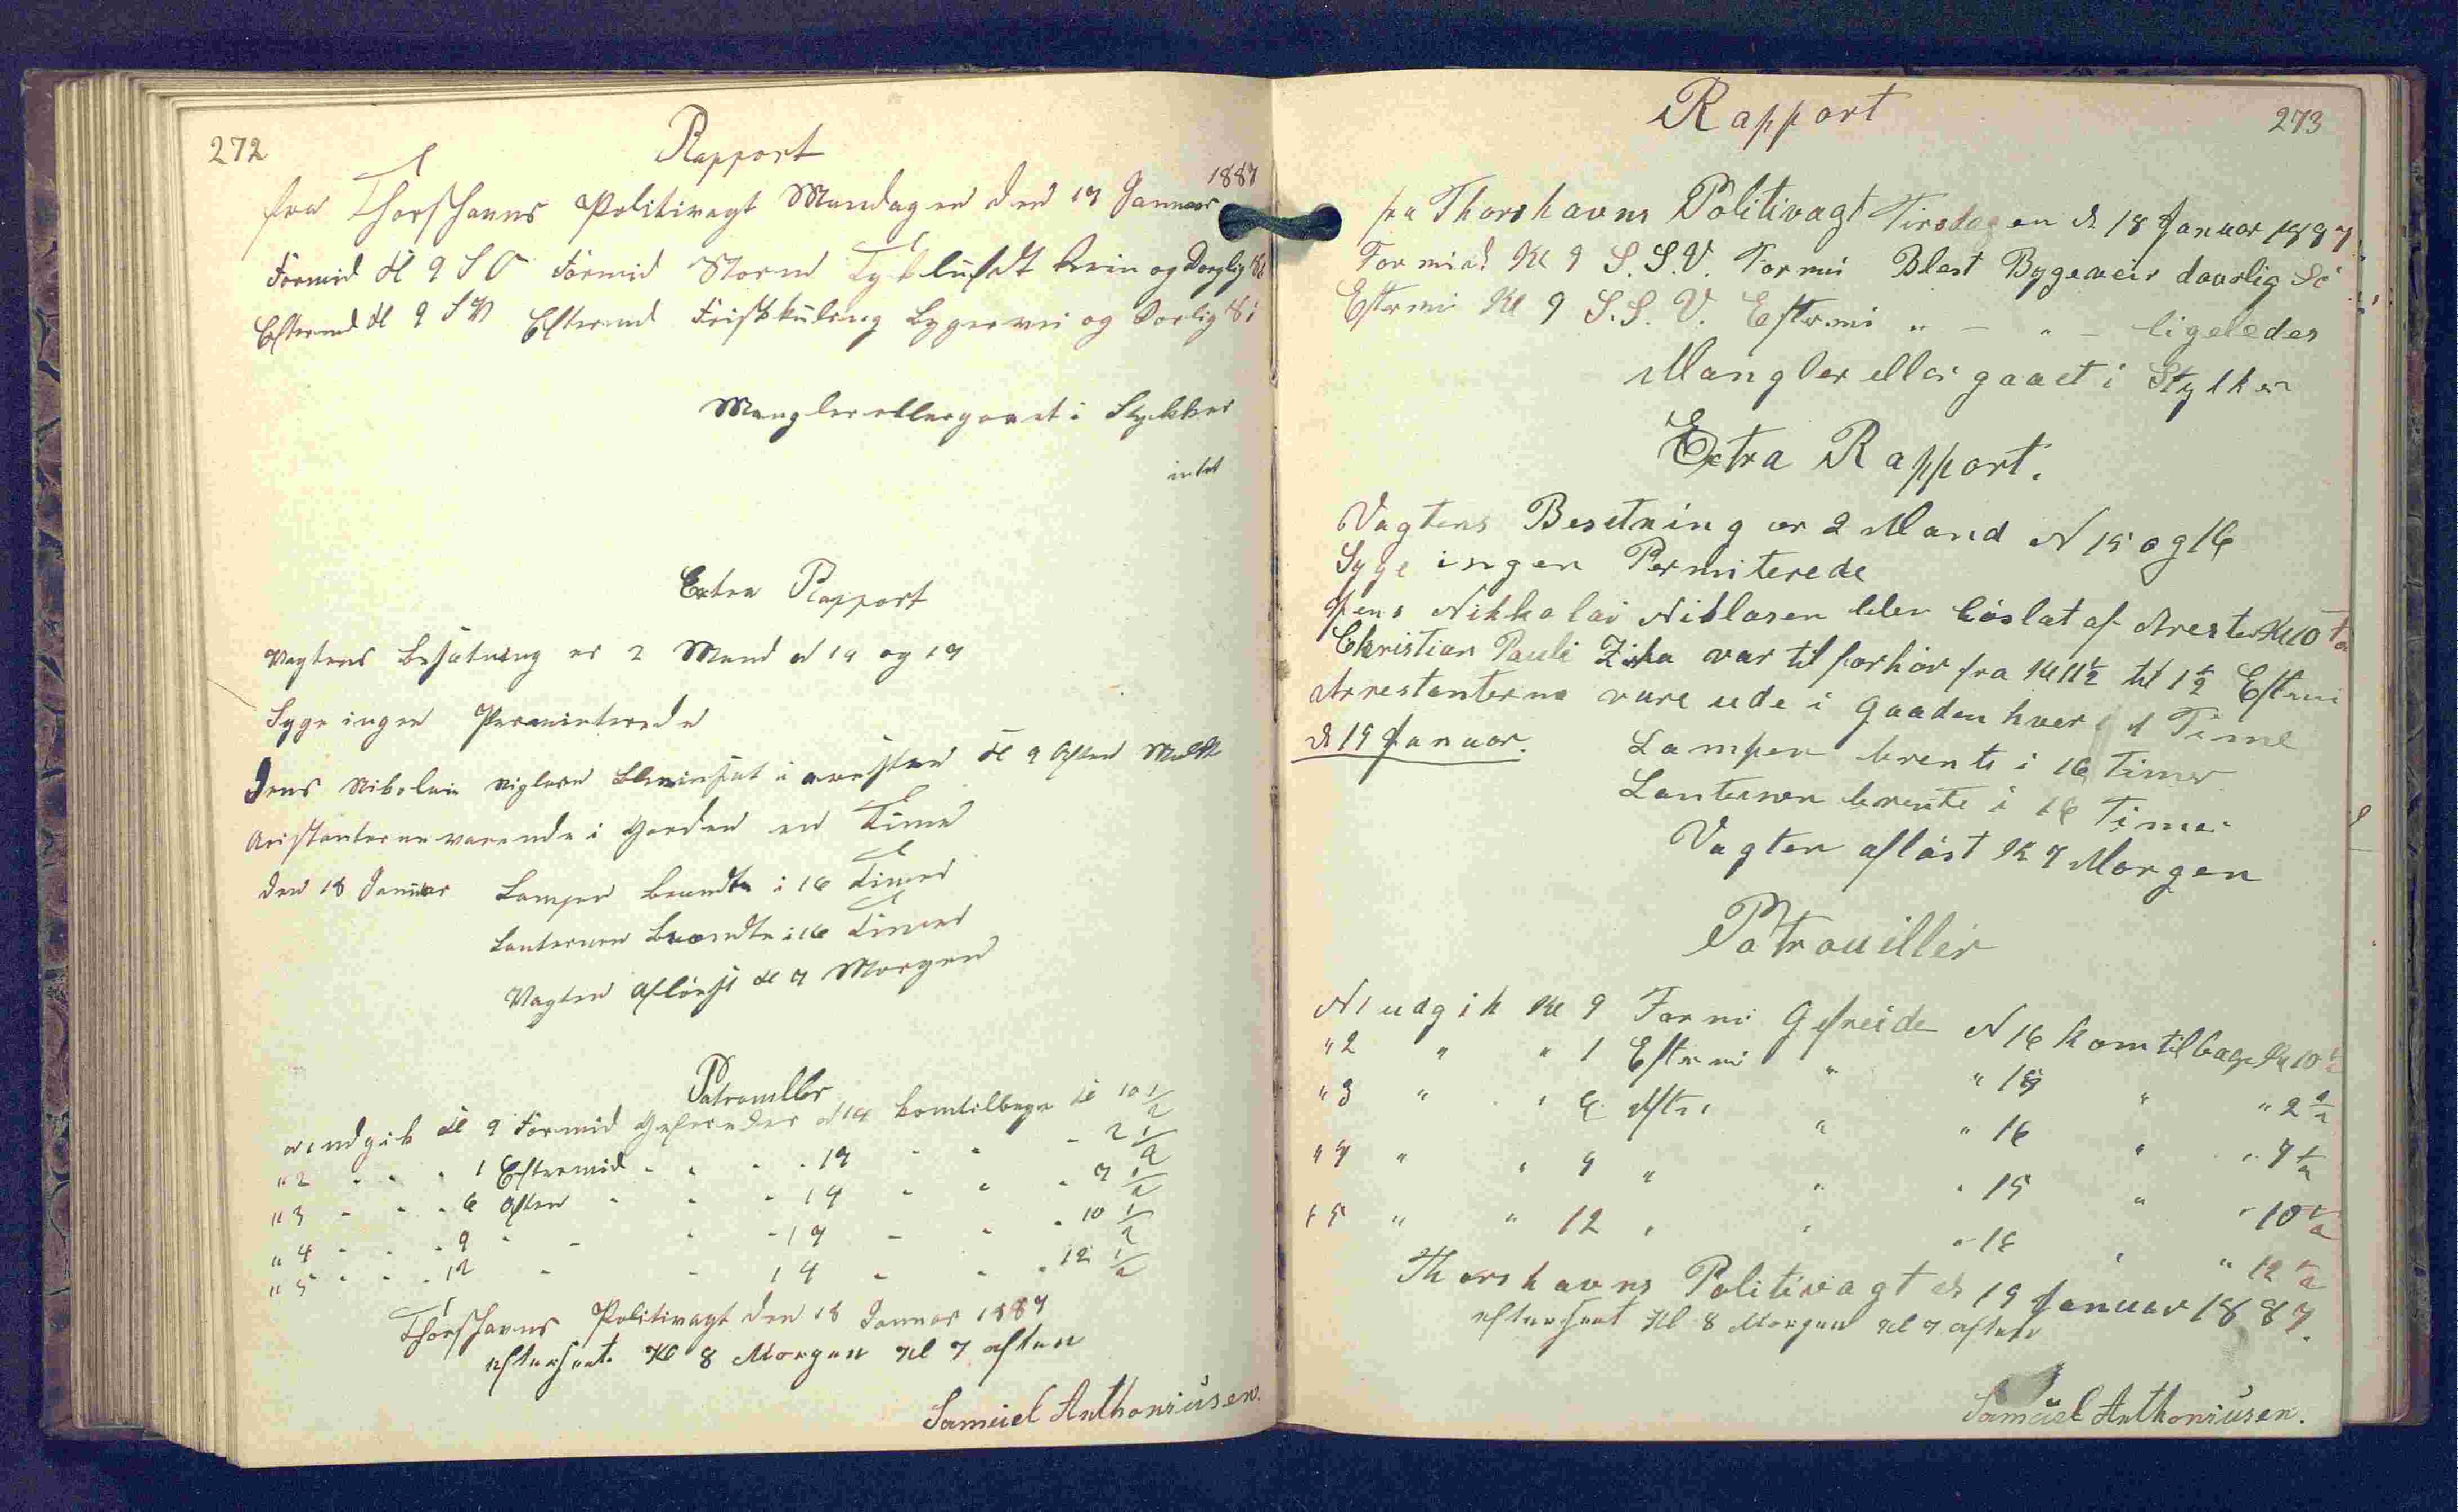 272
Rapport
1887
fra Thorshavns Politivagt Mandagen den 17 Januar
Formid Kl 9 S O Formid Storm Tyk luft Rein og Dorglig Si
Eftermd Kl 9 S V Eftermd Frisk kuling Bygervei og Dorlig Si
Mangler eller gaaet i Stykker
intet
Extra Rapport
Vagtens Besætning er 2 Mand N 14 og 19
Syge ingen Perminterede
Jens Nikolai Niglasen Blev insat i aresten Kl 9 Aften
Aristanterne vare ude i Gorden en Time
den 18 Januar Lampen Brændte i 16 Timer
Lanternen Brændte i 16 Timer
Vagten Afløst Kl 7 Morgen
Patrouller
N 1 udgik Kl 9 Formid Gefreider N 14 kom tilbage Kl 10 1/2
" 2 " " " 1 Eftermid " " " " 19 " " " 2 1/2
" 3 " " " 6 Aften " " " 14 " " " 7 1/2
" 4 " " " 9 " " " " 19 " " " 10 1/2
" 5 " " " 12 " " 14 " " " 12 1/2
Thorshavns Politivagt den 18 Januar 1887
efterseet Kl 8 Morgen Kl 7 aften
Samuel Anthoniusen.
273
Rapport
fra Thorshavns Politivagt Tirsdagen d 18 Januar 1887
Formid Kl 9 S.S.V. Formi Blest Bygeveir daarlig Sö
Eftermi Kl 9 S.S.V. Eftermi " – " – ligeledes
Mangler eller gaaet i Stykker
Extra Rapport.
Vagtens Besetning er 2 Mand N 15 og 16
Syge ingen Permiterede
Jens Nikkolai Niklasen blev löslat af Aresten Kl 10 Fo
Christian Pauli Ziska var til forhör fra Kl 11 1/2 til 1 1/2 Eftmi
Arrestanterne vare ude i Gaaden hver 1 Time
d 19 Januar. Lampen brente i 16 Timer
Lanternen brente i 16 Timer
Vagten aflöst Kl 7 Morgen
Patrouiller
N 1 udgik Kl 9 Formi Gefreide N 16 kom tilbage Kl 10 1/2
" 2 " " 1 Eftermi " " 15 " " 2 1/2
" 3 " " 6 Aften " " 16 " " 7 1/2
" 4 " " 9 " " " 15 " " 10 1/2
" 5 " " 12 " " " 16 " " 12 1/2
Thorshavns Politivagt d 19 Januar 1887.
efterseet Kl 8 Morgen Kl 7 aften
Samuel Anthoniusen.